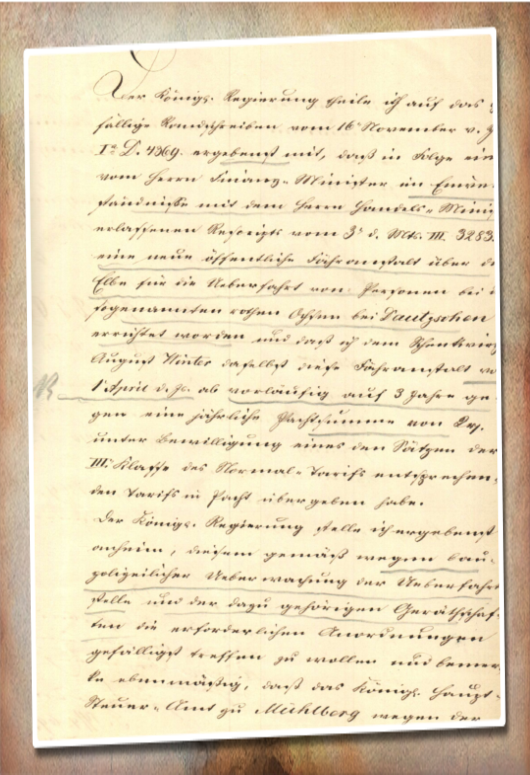 Der Königl. Regierung theile ich auf das
fällige Randschreiben vom 16 November v. J
I.a D. 4369. ergebenst mit, daß in Folge ein
vom Herrn Finanz-Minister im Einver
ständnisse mit dem Herrn Handels-Minis
erlassenen Rescripts vom 3t d. Mts. III. 3283.
eine neue öffentliche Fähranstalt über d
Elbe für die Ueberfahrt von Personen bei
sogenannten rothen Ochsen bei Pautzschen
errichtet worden und daß ich dem Schenkwirt
August Winter daselbst diese Fähranstalt v
1 April d. Js. ab vorläufig auf 3 Jahre ge-
gen eine jährliche Pachtsumme von
unter Bewilligung eines den Sätzen der
III. Klasse des Normal-Tarifs entsprechen-
den Tarifs in Pacht übergeben habe.
Der Königl. Regierung stelle ich ergebenst
anheim, diesem gemäß wegen bau-
polizeilicher Ueberwachung der Ueberfahr
stelle und der dazu gehörigen Geräthschaf-
ten die erforderlichen Anordnungen
gefälligst treffen zu wollen und bemer
ke ebenmäßig, daß das Königl. Haupt-
Steuer-Amt zu Mühlberg wegen der